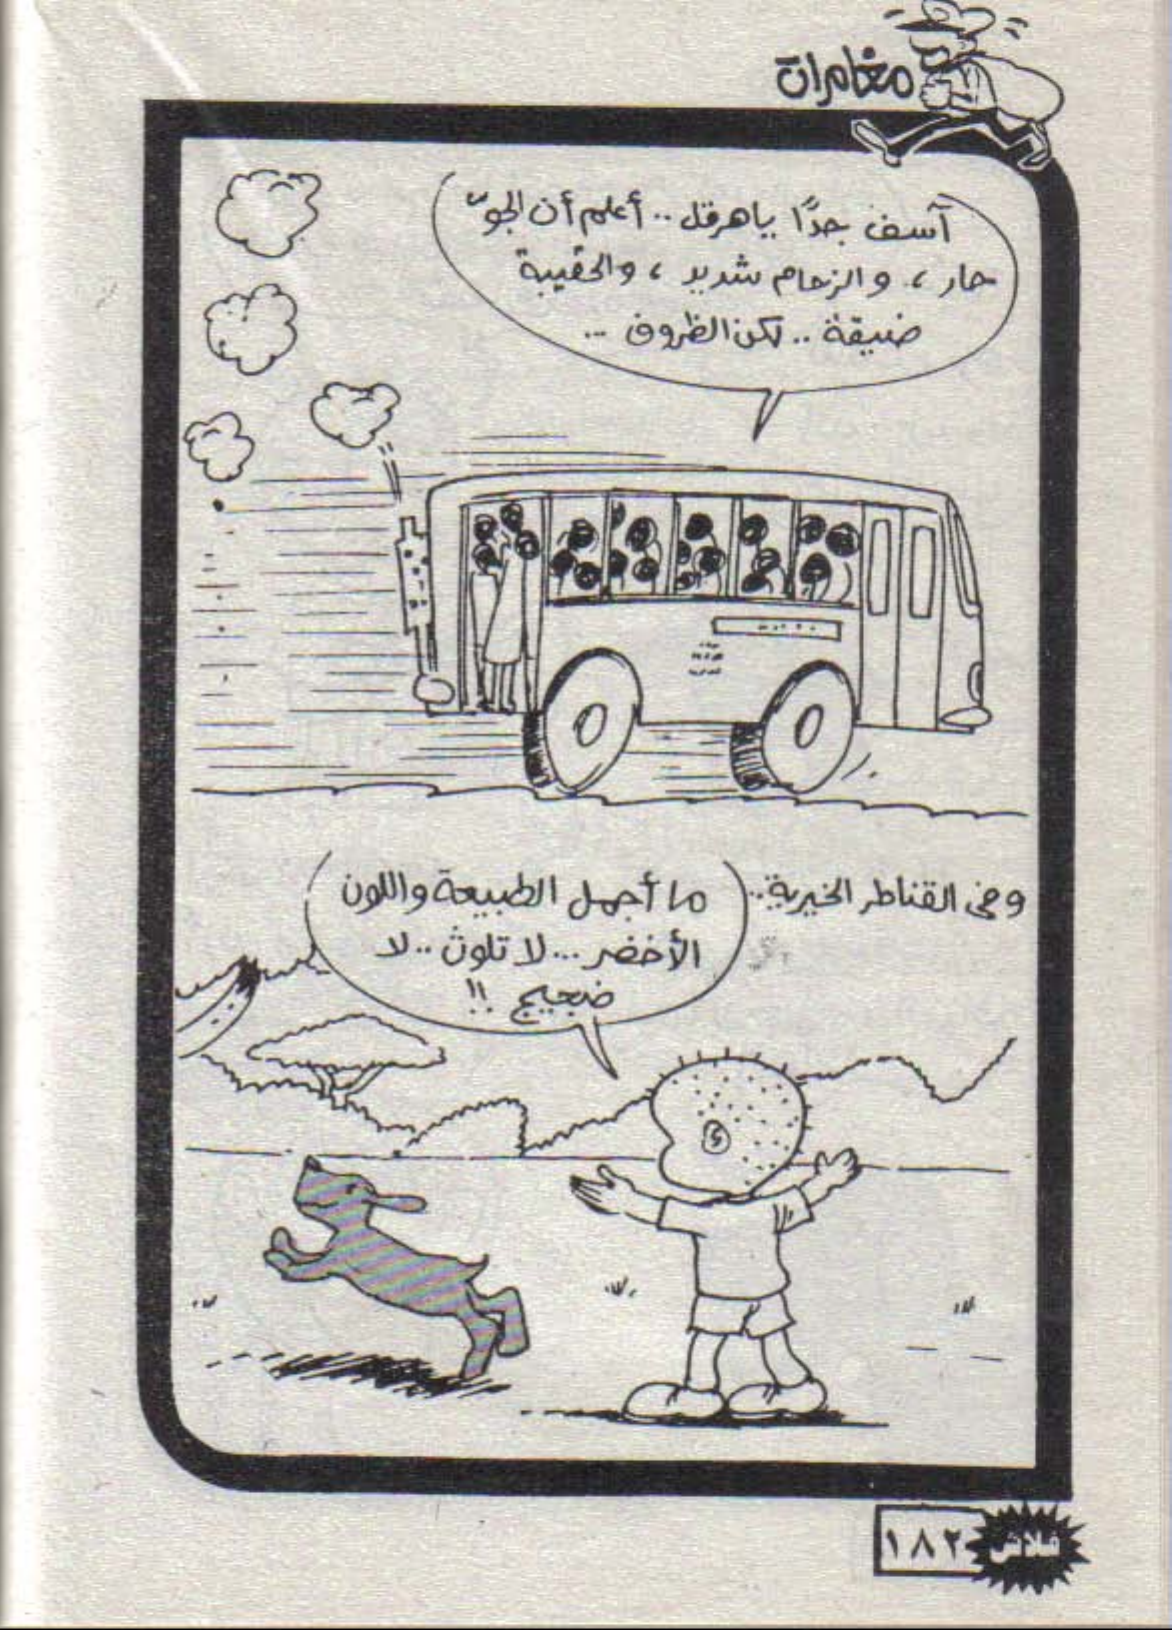 مغامرات
آسف جدًا ياهرقل .. أعلم أن الجوّ
حار ، والزحام شديد ، والحقيبة
ضيقة .. لكن الظروف ...
وفى القناطر الخيرية ..
ما أجمل الطبيعة واللون
الأخضر ... لا تلوث .. لا
ضجيج !!
فلاش
١٨٢